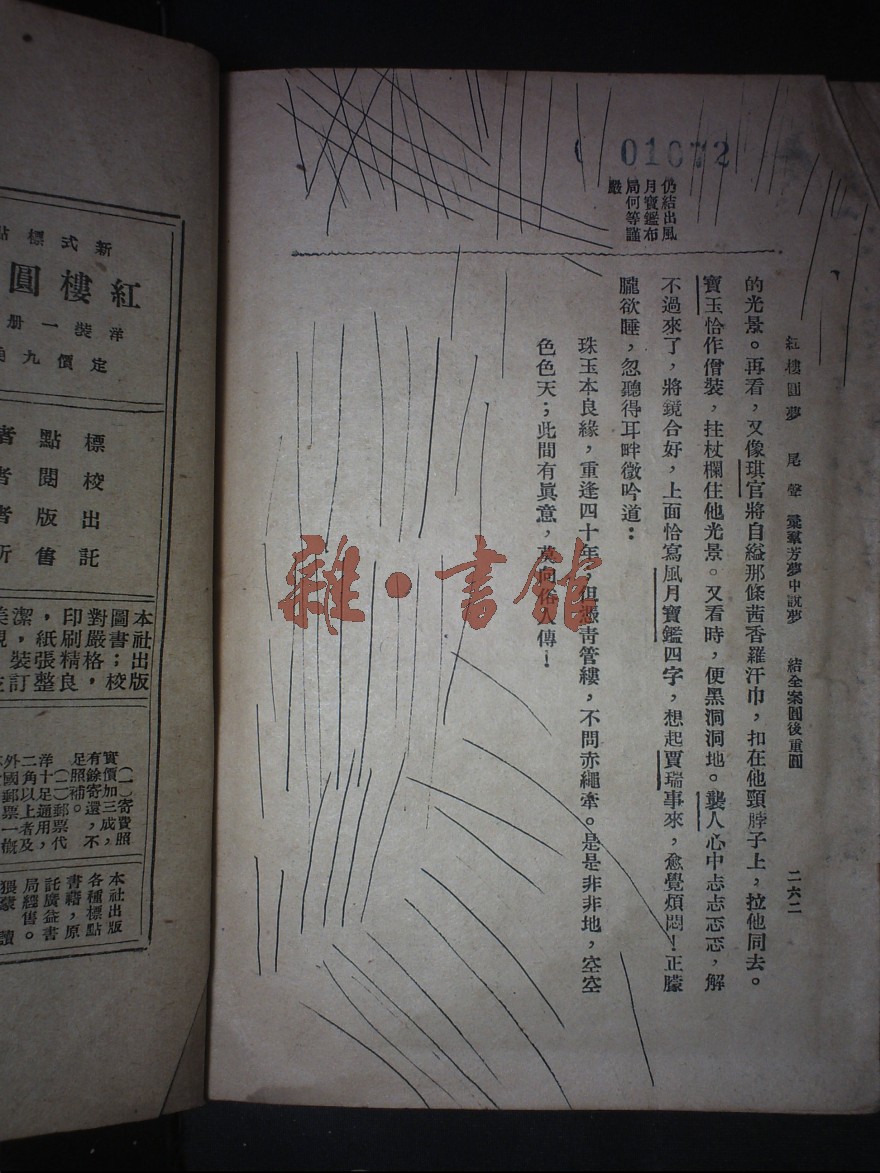 01672
仍結出風
月寶鑑布
局何等謹
嚴
紅樓圓夢 尾聲 叢羣芳夢中説夢 結全案圓後重圓 二六二
的光景。再看，又像琪官將自縊那條茜香羅汗巾，扣在他頸脖子上，拉他同去。
寶玉恰作僧裝，拄杖欄住他光景。又看時，便黑洞洞地。襲人心中志志忑忑，解
不過來了，將鏡合好，上面恰寫風月寶鑑四字，想起賈瑞事來，愈覺煩悶！正朦
朧欲睡，忽聽得耳畔微吟道：
珠玉本良緣，重逢四十年，但憑青管縷，不問赤繩牽。是是非非地，空空
色色天；此間有眞意，莫向俗人傳！
雜·書館
新式標點
紅樓圓
洋裝一册
定價九角
標點者
校閱者
出版者
託售所
本社出版
圖書；校
對嚴格，
印刷精良
，紙張整
潔，裝訂
美
（一）寄費照
實價加三成，
有餘寄還，不
足照補。
（二）郵票代
洋十足通用，
二角以上者及
外國郵票一概
本社出版
各種標點
書籍，原
託廣益書
局經售。
猥蒙讀